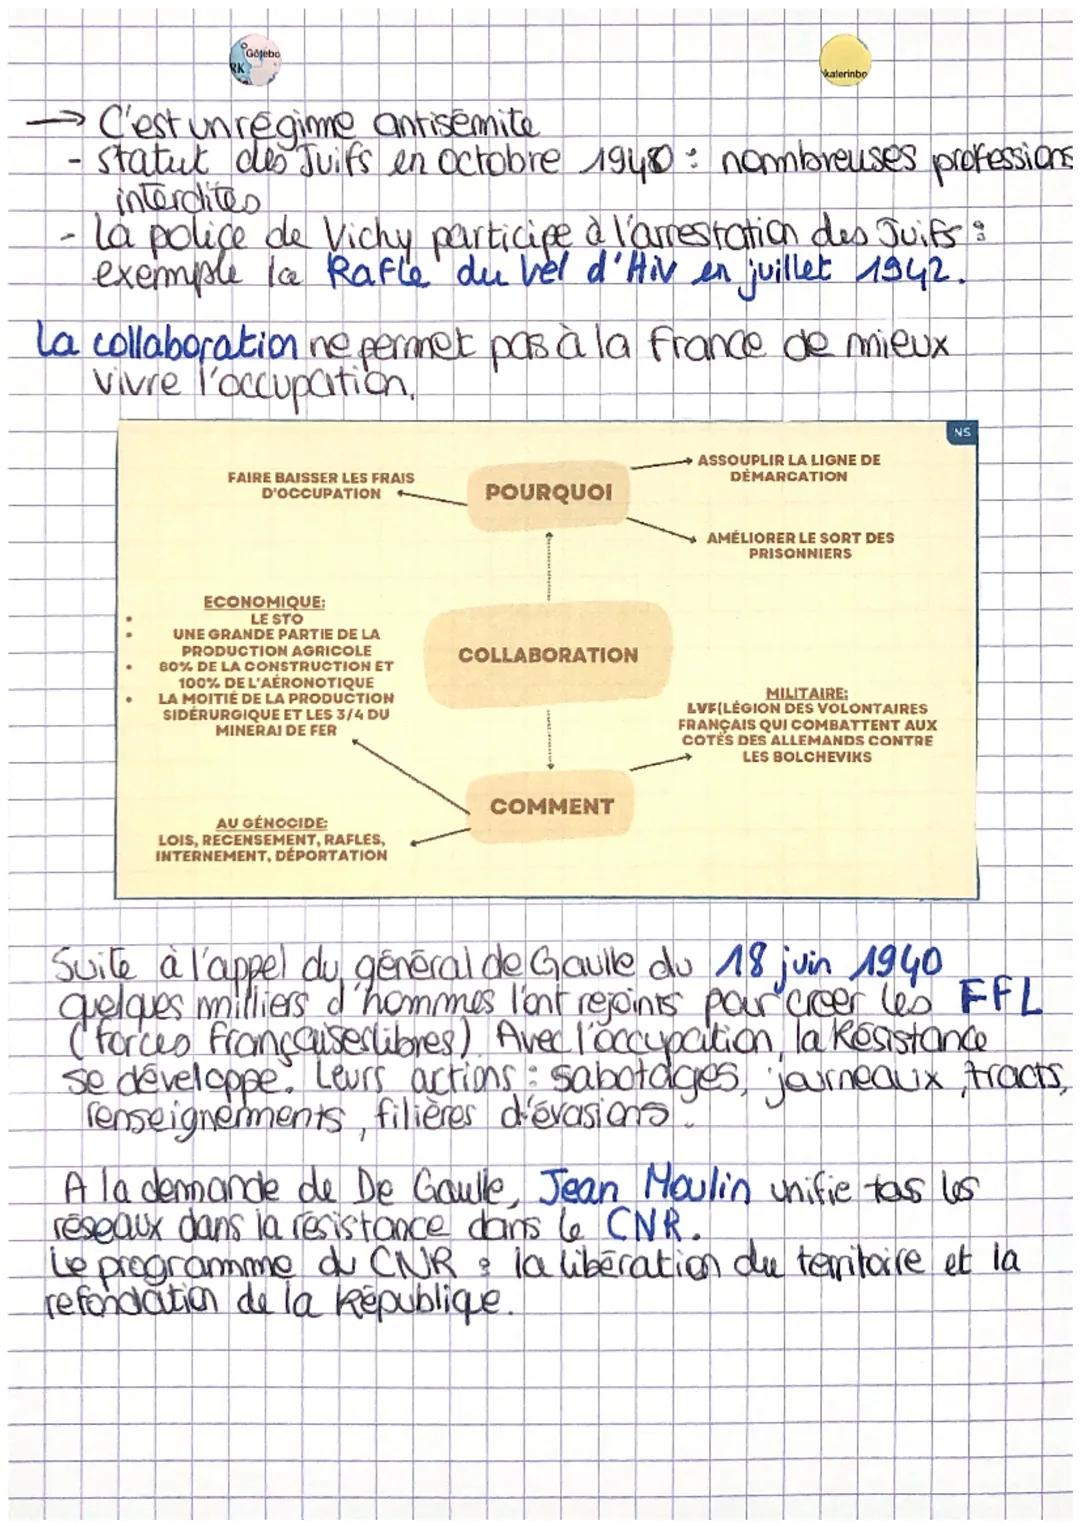 Götebo
RK
katerinbo
→ C'est un régime antisémite
- statut des Juifs en octobre 1940 : nombreuses professions
interdites
- La police de Vichy participe à l'arrestation des Juifs :
exemple la Rafle du Vel d'Hiv en juillet 1942.
La collaboration ne permet pas à la France de mieux
vivre l'occupation.
NS
FAIRE BAISSER LES FRAIS
D'OCCUPATION
POURQUOI
ASSOUPLIR LA LIGNE DE
DÉMARCATION
AMÉLIORER LE SORT DES
PRISONNIERS
ECONOMIQUE:
• LE STO
• UNE GRANDE PARTIE DE LA
PRODUCTION AGRICOLE
• 80% DE LA CONSTRUCTION ET
100% DE L'AÉRONOTIQUE
• LA MOITIÉ DE LA PRODUCTION
SIDÉRURGIQUE ET LES 3/4 DU
MINERAI DE FER
COLLABORATION
MILITAIRE:
LVF(LÉGION DES VOLONTAIRES
FRANÇAIS QUI COMBATTENT AUX
COTÉS DES ALLEMANDS CONTRE
LES BOLCHEVIKS
COMMENT
AU GÉNOCIDE:
LOIS, RECENSEMENT, RAFLES,
INTERNEMENT, DÉPORTATION
Suite à l'appel du général de Gaulle du 18 juin 1940
quelques milliers d'hommes l'ont rejoints pour creer les FFL
(forces françaises libres). Avec l'occupation, la Résistance
se développe. Leurs actions : sabotages, journeaux, tracts,
renseignements, filières d'évasions.
A la demande de De Gaulle, Jean Moulin unifie tous les
réseaux dans la résistance dans le CNR.
Le programme du CNR : la libération du territoire et la
refondation de la République.